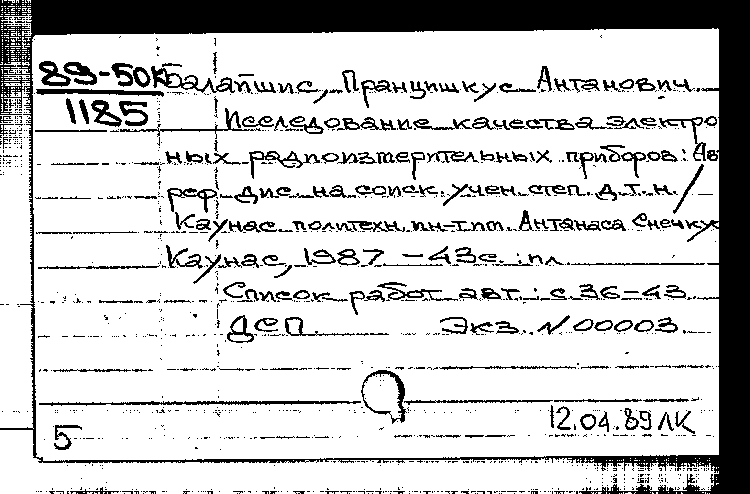 89-50к
1185
Балайшис, Пранцишкус Антанович
Исследование качества электро
ных радиоизмерительных приборов: Ав
реф. дис. на соиск. учен. степ. д.т.н. /
Каунас. политехн. ин-т им. Антанаса Снечку
Каунас, 1987 - 43с. : ил
Список работ авт.: с. 36-43
ДСП. Экз. N 00003
12.04.89 ЛК
5